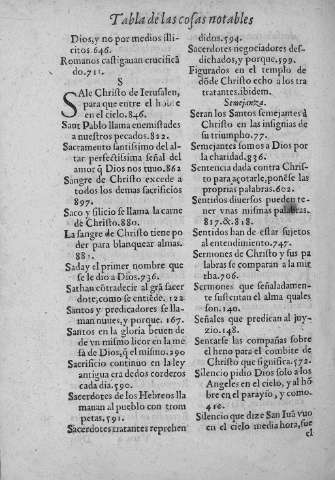 Tabla de las cosas notables
Dios, y no por medios illi-
citos. 646.
Romanos castigauan crucificã
do. 711.
S
SAle Christo de Ierusalen,
para que entre el hõbre
en el cielo. 846.
Sant Pablo llama enemistades
a nuestros pecados. 822.
Sacramento santissimo del al-
tar perfectissima señal del
amor q̃ Dios nos tuuo. 862
Sangre de Christo excede a
todos los demas sacrificios
897.
Saco y silicio se llama la carne
de Christo. 880.
La sangre de Christo tiene po
der para blanquear almas.
881.
Saday el primer nombre que
se le dio a Dios. 736.
Sathan cõtradecir al grã sacer
dote, como se entiẽde. 122
Santos y predicadores se lla-
man nuues, y porque. 167.
Santos en la gloria beuen de
de vn mismo licor en la me
sa de Dios, q̃ el mismo. 290
Sacrificio continuo en la ley
antigua era de dos corderos
cada dia. 590.
Sacerdotes de los Hebreos lla
mauan al pueblo con trom
petas. 591.
Sacerdotes tratantes reprehen
didos. 594.
Sacerdotes negociadores des-
dichados, y porque. 599.
Figurados en el templo de
dõde Christo echo a los tra
tratantes. ibidem.
Semejança.
Seran los Santos semejantes à
Christo en las insignias de
su triumpho. 77.
Semejantes somos a Dios por
la charidad. 836.
Sentencia dada contra Chris-
to para açotarle, ponẽse las
proprias palabras. 602.
Sentidos diuersos pueden te-
ner vnas mismas palabras.
817. & 818.
Sentidos han de estar sujetos
al entendimiento. 747.
Sermones de Christo y sus pa
labras se comparan a la mir
rha. 706.
Sermones que señaladamen-
te sustentan el alma quales
son. 140.
Señales que predican al juy-
zio. 148.
Sentarse las compañas sobre
el heno para el combite de
Christo que significa. 572.
Silencio pidio Dios solo a los
Angeles en el cielo, y al hõ
bre en el parayso, y como.
410.
Silencio que dize San Iuã vuo
en el cielo media hora, fue
el